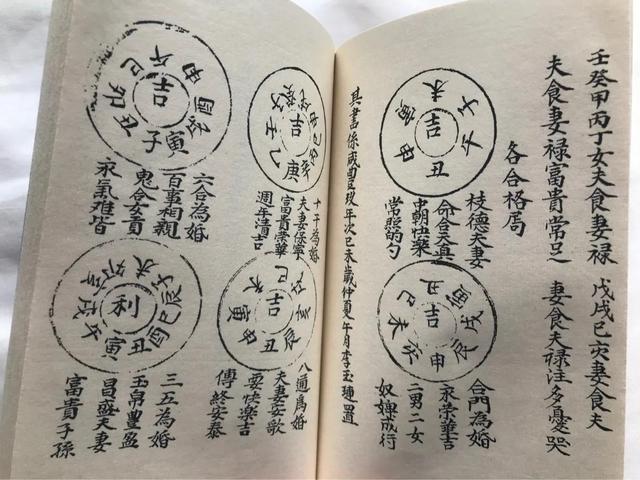 壬癸甲丙丁女夫食妻禄
戊戌巳亥妻食夫
夫食妻禄富貴常足
妻食夫禄注多憂哭
各合格局
吉
丑
枝德夫妻
命合天真
中朝快樂
常照的勺
吉
申
合門為婚
永榮華吉
二男二女
奴婢成行
其書係咸豐玖年次己未歲仲夏午月李玉璉置
吉
庚
十干為婚
夫妻保寧
富貴榮華
週年清吉
吉
丑
八通為婚
夫妻安歌
要快樂吉
傳終安泰
吉
子
寅
丑
卯
巳
午
申
酉
戌
六合為婚
百事和親
鬼合女貢
永氣难皆
利
寅
丑
酉
巳
辰
子
三五為婚
玉帛豐盈
昌盛夫妻
富貴子孫